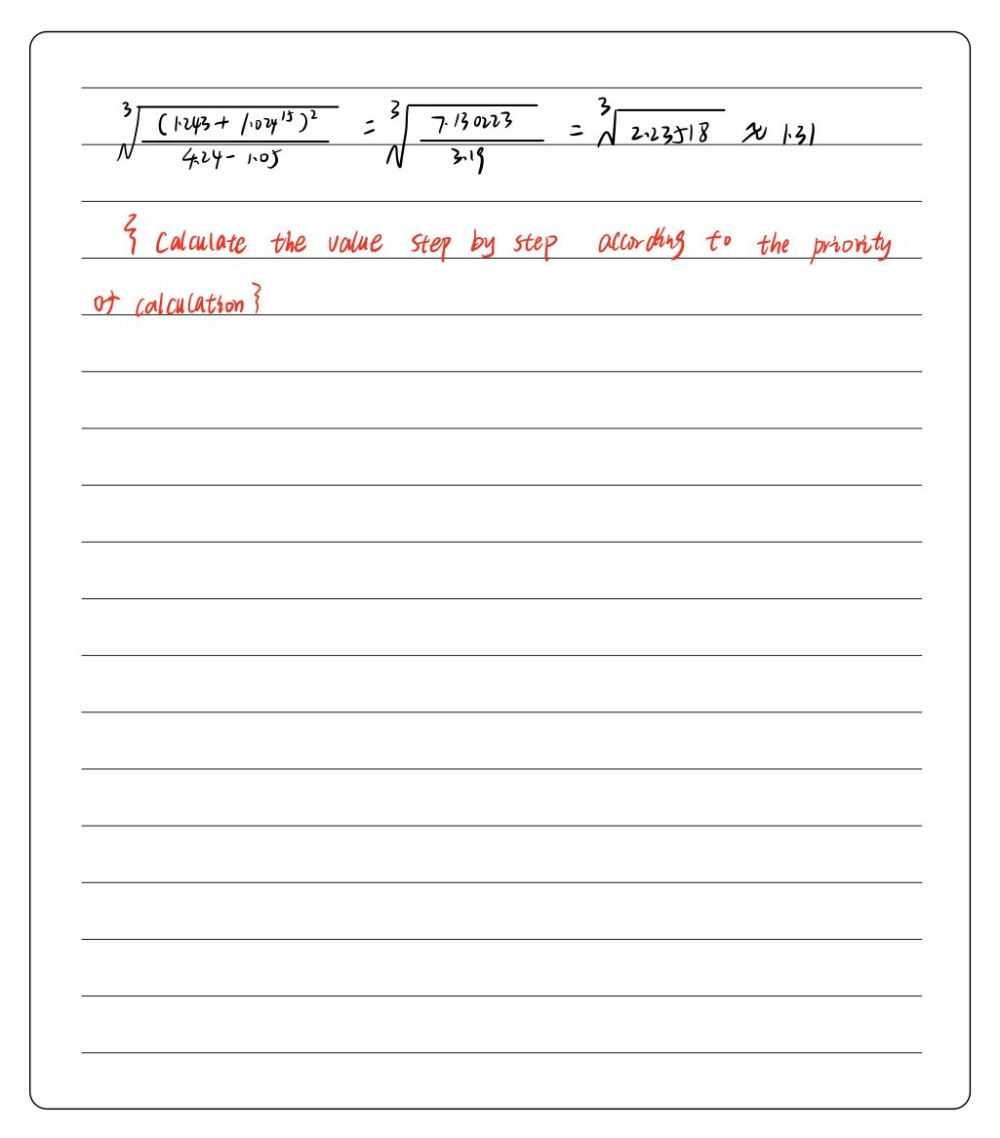 ∛((1.243 + 1.024^15)^2 / (4.24 - 1.05)) = ∛(7.130223 / 3.19) = ∛2.23518 ≈ 1.31
{ Calculate the value step by step according to the priority
of calculation }